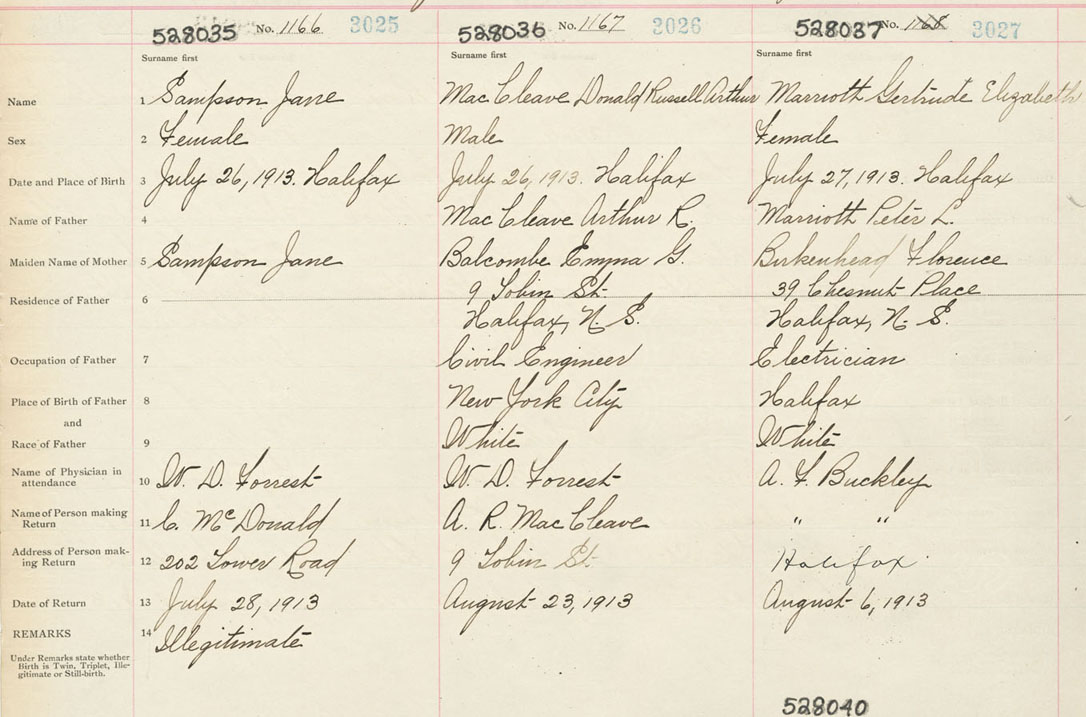 528035 No. 1166 3025 528036 No. 1167 2026 528037 No. 1168 3027
Surname first Surname first Surname first
Name 1 Sampson Jane Mac Cleave Donald Russell Arthur Marrioth Gertrude Elizabeth
Sex 2 Female Male Female
Date and Place of Birth 3 July 26, 1913. Halifax July 26, 1913. Halifax July 27, 1913. Halifax
Name of Father 4 Mac Cleave Arthur R. Marrioth Peter L.
Maiden Name of Mother 5 Sampson Jane Balcombe Emma G. Birkenhead Florence
9 Tobin St. 39 Chesnut Place
Residence of Father 6
Halifax, N. S. Halifax, N. S.
Occupation of Father 7 Civil Engineer Electrician
Place of Birth of Father 8 New York City Halifax
and
Race of Father 9 White White
Name of Physician in
attendance 10 W. D. Forrest W. D. Forrest A. F. Buckley
Name of Person making
Return 11 C. McDonald A. R. Mac Cleave " "
Address of Person mak-
ing Return 12 202 Tower Road 9 Tobin St. Halifax
Date of Return 13 July 28, 1913 August 23, 1913 August 6, 1913
REMARKS 14 Illegitimate
Under Remarks state whether
Birth is Twin, Triplet, Ille-
gitimate or Still-birth.
528040